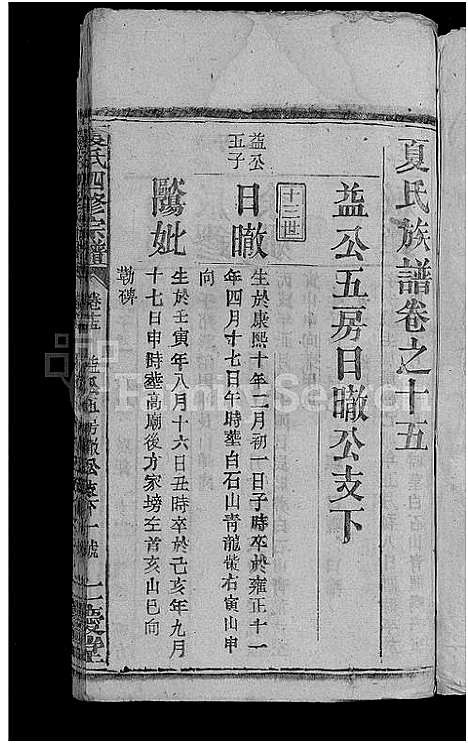 夏氏族譜卷之十五
益公五房日暾公支下
十三世
益公
五子
日暾
生於康熙十年二月初一日子時卒於雍正十一
年四月十七日午時塟白石山青龍嘴右寅山申
向
歐妣
生於壬寅年八月十六日丑時卒於己亥年九月
十七日申時塟高廟後方家塝左首亥山巳向
勒碑
夏氏四修宗譜
卷十五
益公五房暾公支下一號
慶堂